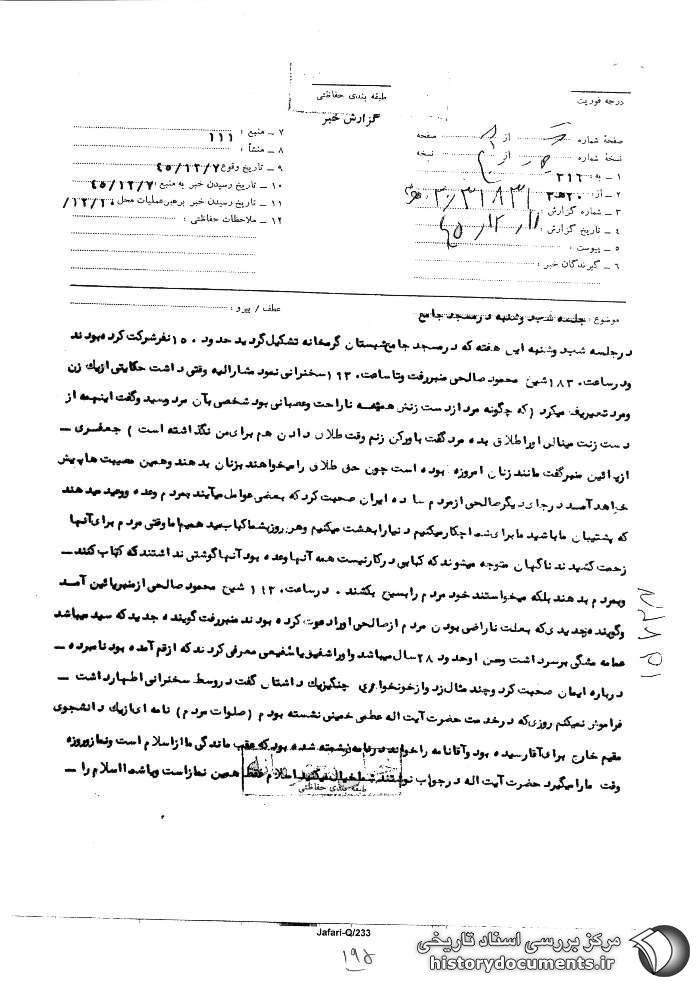 درجه فوریت
طبقه بندی حفاظتی
گزارش خبر
صفحهٔ شماره از صفحه
نسخهٔ شماره از نسخه
۱ ـ به : ۳۱۶
۲ ـ از : ۲۰ هـ ۳
۳ ـ شماره گزارش :
۴ ـ تاریخ گزارش :
۵ ـ پیوست :
۶ ـ گیرندگان خبر :
۷ ـ منبع : ۱۱۱
۸ ـ منشأ :
۹ ـ تاریخ وقوع ۴۵/۱۲/۷
۱۰ ـ تاریخ رسیدن خبر به منبع : ۴۵/۱۲/۷
۱۱ ـ تاریخ رسیدن خبر برهبر عملیات محل
۱۲ ـ ملاحظات حفاظتی :
موضوع : جلسه شب دوشنبه در مسجد جامع
عطف / پیرو :
در جلسه شب دوشنبه این هفته که در مسجد جامع شبستان گرمخانه تشکیل گردید حدود ۱۵۰ نفر شرکت کرده بودند
ودر ساعت ۱۸۳۰ شیخ محمود صالحی منبر رفت وتا ساعت ۱۹۳۰ سخنرانی نمود مشارالیه وقتی داشت حکایتی از یك زن
ومرد تعریف میکرد (که چگونه مرد از دست زنش همیشه ناراحت وعصبانی بود شخصی بآن مرد رسید وگفت اینهمه از
دست زنت مینالی اورا طلاق بده مرد گفت باور کن زنم وقت طلاق دادن هم برای من نگذاشته است ) جعفری ـ
از پائین منبر گفت مانند زنان امروزه بوده است چون حق طلاق را میخواهند بزنان بدهند وهمین مصیبت ها پیش
خواهد آمد در جای دیگر صالحی از مردم ساده ایران صحبت کرد که بعضی عوامل میآیند بمردم وعده ووعید میدهند
که پشتیبان ما باشید ما برای شما چکار میکنیم دنیا را بهشت میکنیم وهر روز بشما کباب میدهیم اما وقتی مردم برای آنها
زحمت کشیدند ناگهان متوجه میشوند که کبابی در کار نیست همه آنها وعده بود آنها گوشتی نداشتند که کباب کنند ـ
وبمردم بدهند بلکه میخواستند خود مردم را بسیخ بکشند . در ساعت ۱۹۳۰ شیخ محمود صالحی از منبر پائین آمد
وگوینده جدیدی که بعلت ناراضی بودن مردم از صالحی اورا دعوت کرده بودند منبر رفت گوینده جدید که سید میباشد
عمامه مشگی برسر داشت وسن او حدود ۲۸ سال میباشد واورا شفیق یا شفیعی معرفی کردند که از قم آمده بود نامبرده ـ
درباره ایمان صحبت کرد وچند مثال زد واز خونخواری چنگیز یك داستان گفت در وسط سخنرانی اظهار داشت ـ
فراموش نمیکنم روزی که در خدمت حضرت آیت اله عظمی خمینی نشسته بودم (صلوات مردم) نامه ای از یك دانشجوی
مقیم خارج برای آقا رسیده بود وآقا نامه را خواند در نامه نوشته شده بود که عقب ماندگی ما از اسلام است ونماز وروزه
وقت مارا میگیرد حضرت آیت اله در جواب نوشتند شما خیال میکنید اسلام فقط همین نماز است وباشما اسلام را ـ
طبقه بندی حفاظتی
Jafari-Q/233
۱۹۵
مرکز بررسی اسناد تاریخی
historydocuments.ir